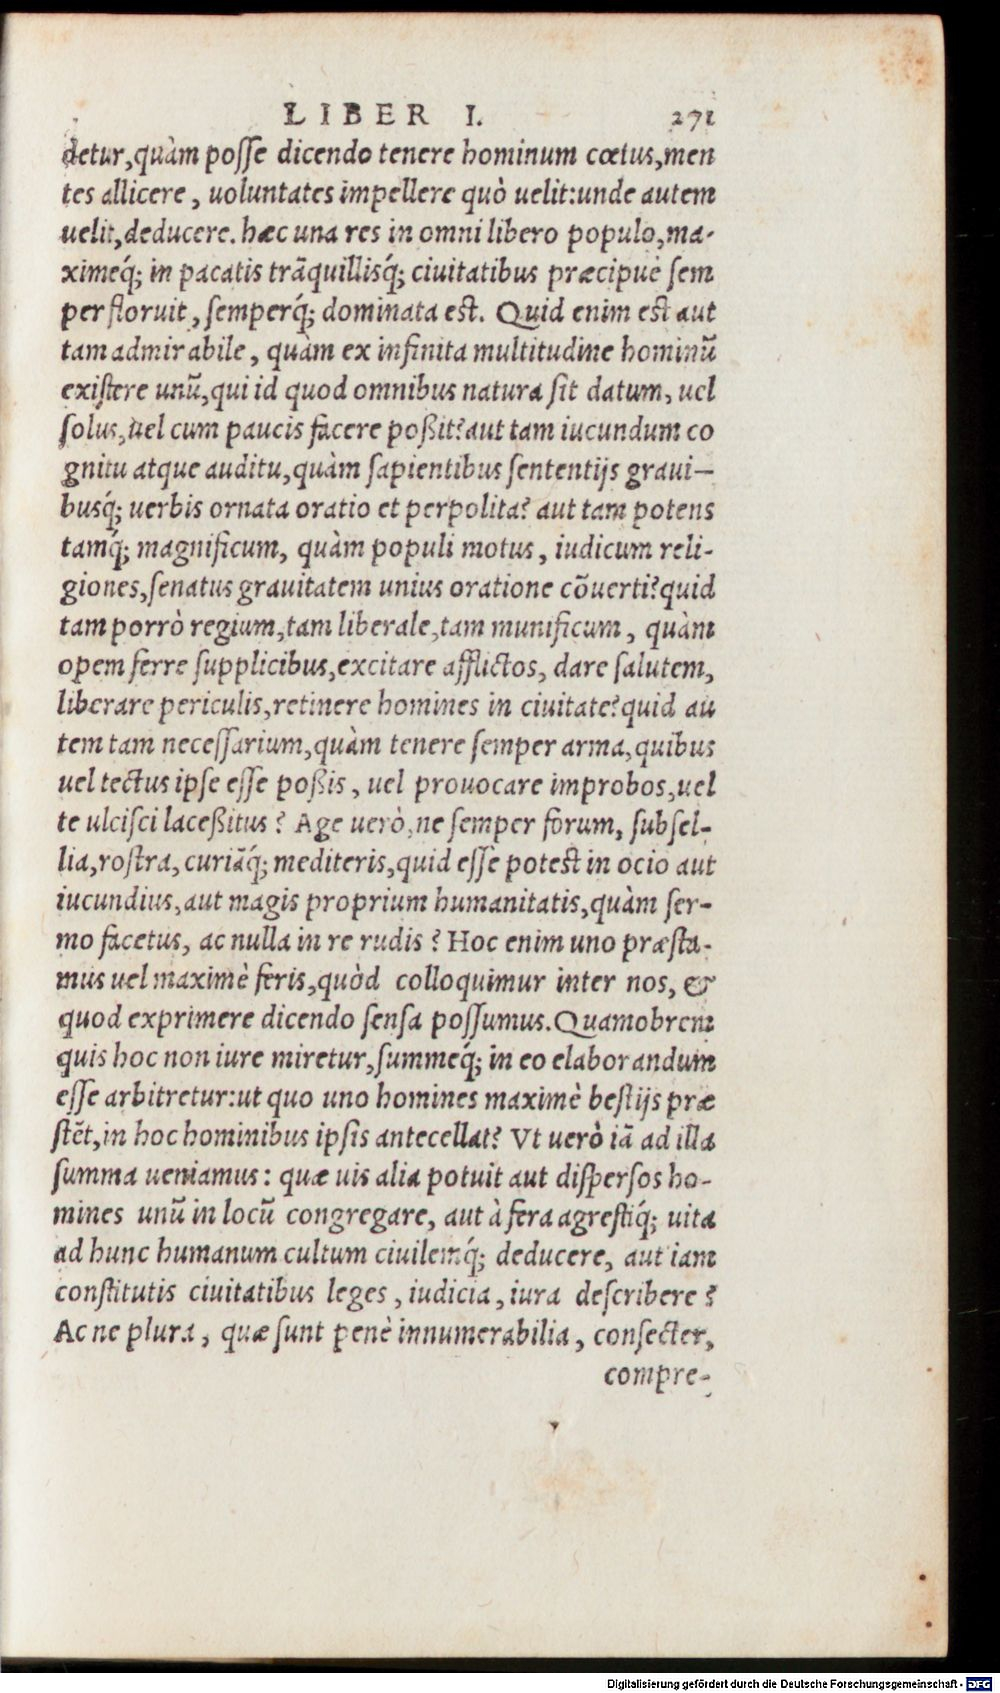 LIBER I. 271
detur,quàm posse dicendo tenere hominum cœtus,men
tes allicere, uoluntates impellere quò uelit:unde autem
uelit,deducere. hæc una res in omni libero populo,ma-
ximeq́; in pacatis trãquillisq́; ciuitatibus præcipuè sem
per floruit, semperq́; dominata est. Quid enim est aut
tam admirabile, quàm ex infinita multitudine hominũ
existere unũ,qui id quod omnibus natura sit datum, uel
solus,uel cum paucis facere poßit?aut tam iucundum co
gnitu atque auditu,quàm sapientibus sententijs graui-
busq́; uerbis ornata oratio et perpolita? aut tam potens
tamq́; magnificum, quàm populi motus, iudicum reli-
giones,senatus grauitatem unius oratione cõuerti?quid
tam porrò regium,tam liberale,tam munificum, quàm
opem ferre supplicibus,excitare afflictos, dare salutem,
liberare periculis,retinere homines in ciuitate?quid au
tem tam necessarium,quàm tenere semper arma,quibus
uel tectus ipse esse poßis, uel prouocare improbos,uel
te ulcisci laceßitus? Age uerò,ne semper forum, subsel-
lia,rostra, curiãq́; mediteris,quid esse potest in ocio aut
iucundius,aut magis proprium humanitatis,quàm ser-
mo facetus, ac nulla in re rudis? Hoc enim uno præsta-
mus uel maximè feris,quòd colloquimur inter nos, &
quod exprimere dicendo sensa possumus. Quamobrem
quis hoc non iure miretur,summeq́; in eo elaborandum
esse arbitretur:ut quo uno homines maximè bestijs præ
stẽt,in hoc hominibus ipsis antecellat? Vt uerò iã ad illa
summa ueniamus: quæ uis alia potuit aut dispersos ho-
mines unũ in locũ congregare, aut à fera agrestiq́; uita
ad hunc humanum cultum ciuilemq́; deducere, aut iam
constitutis ciuitatibus leges, iudicia, iura describere?
Ac ne plura, quæ sunt penè innumerabilia, consecter,
compre-
Digitalisierung gefördert durch die Deutsche Forschungsgemeinschaft - DFG